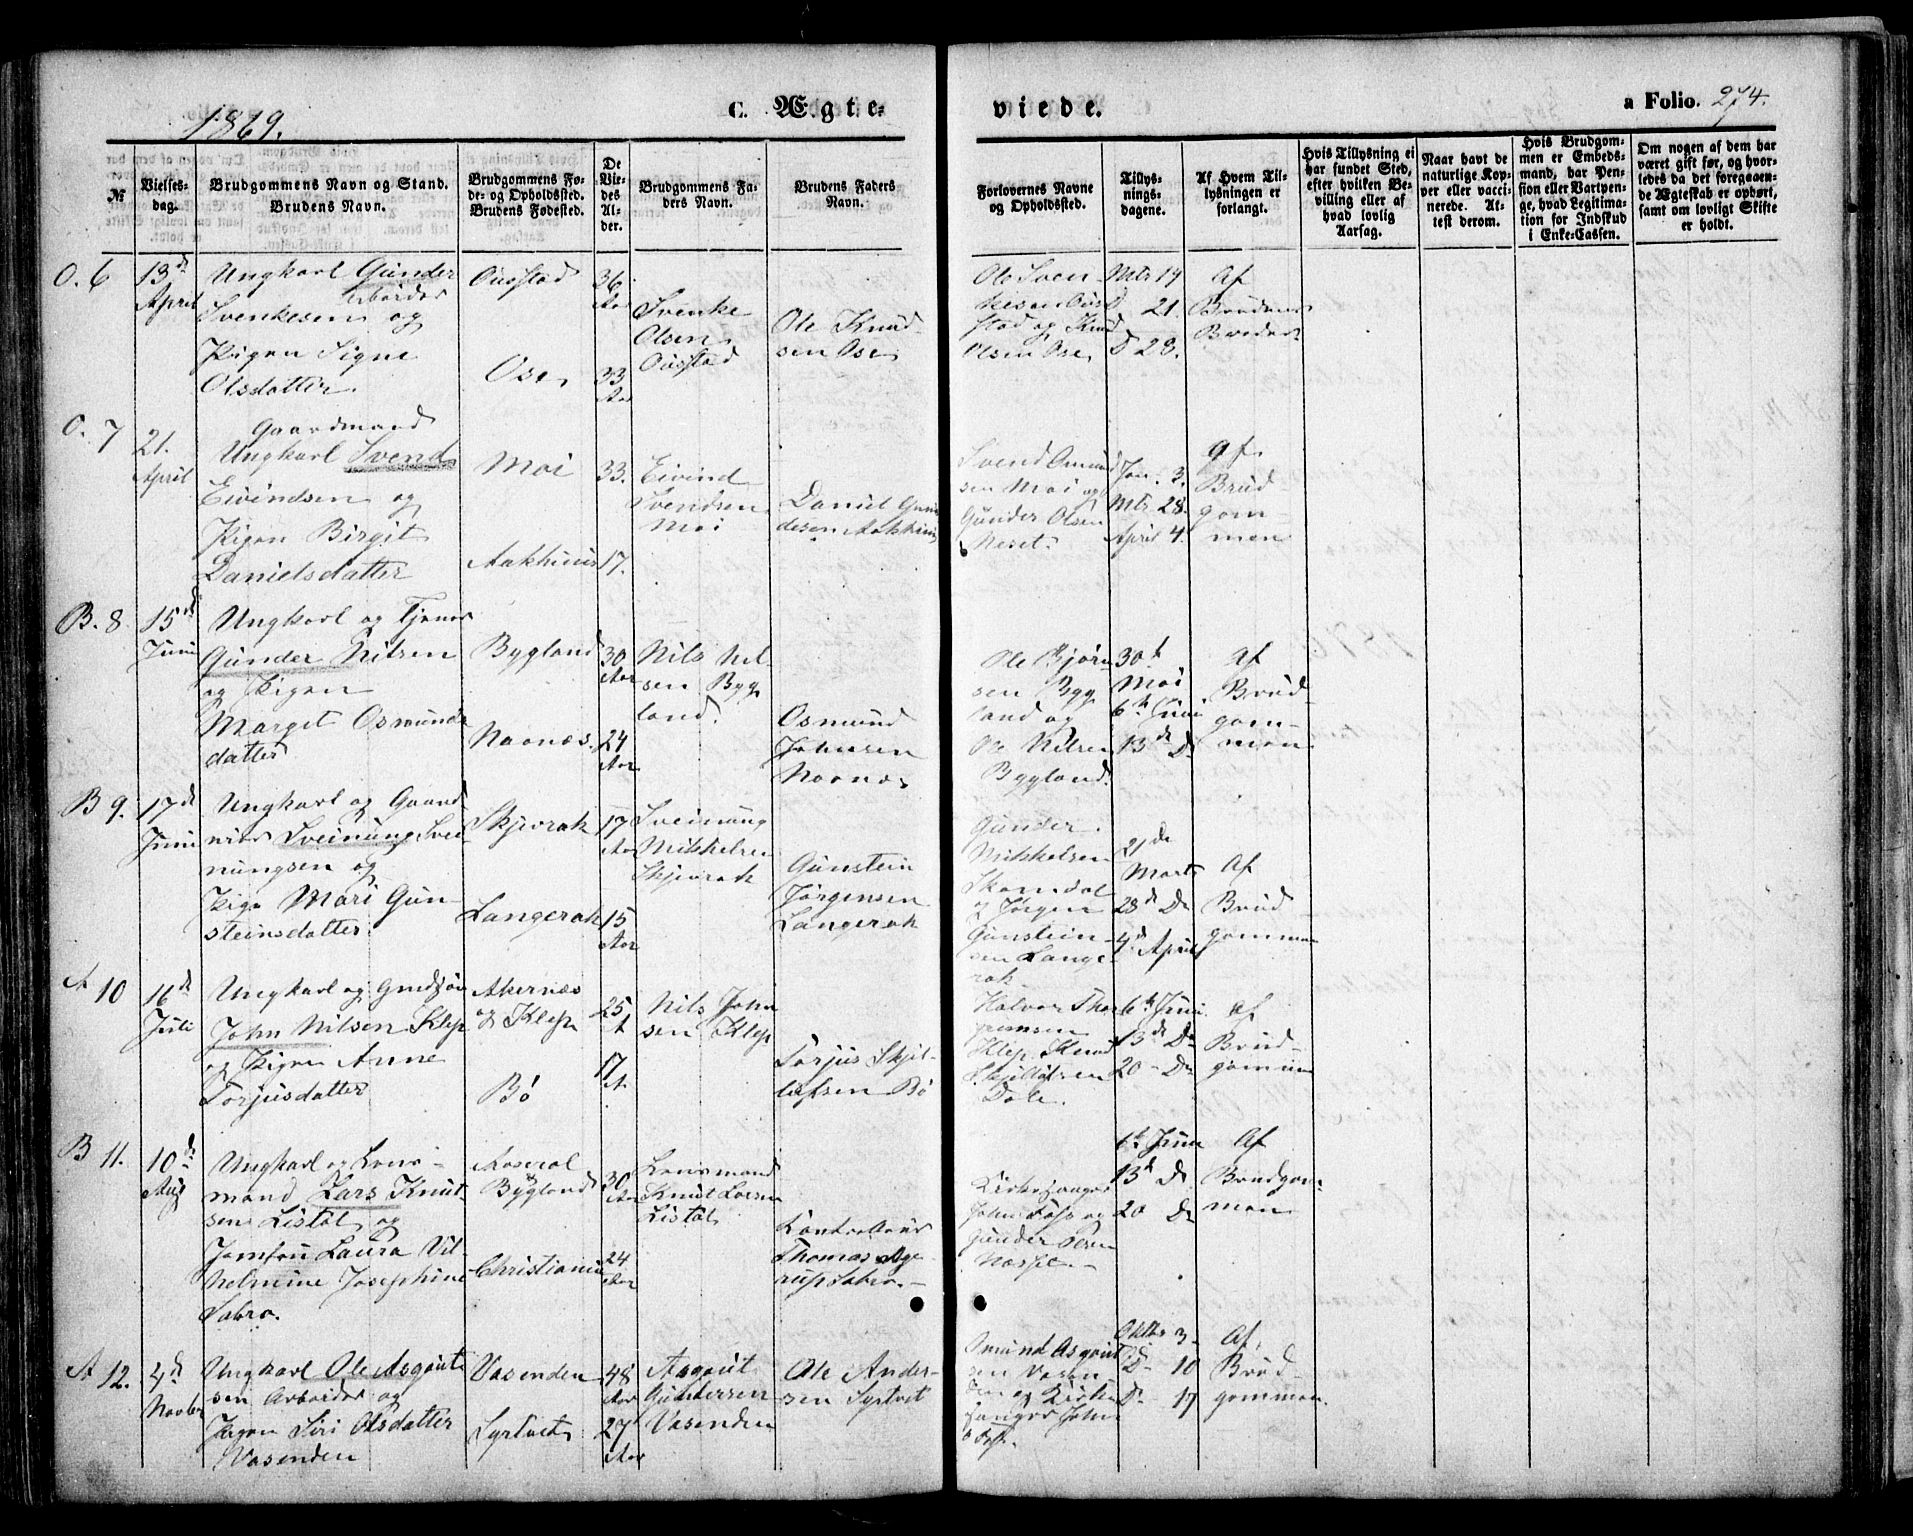 1869.
C. Ægte-
viede.
a Folio. 274.
№
Vielses-
dag.
Brudgommens Navn og Stand.
Brudens Navn.
Brudgommens Fø-
de- og Opholdssted.
Brudens Fødested.
De
Vie-
des
Al-
der.
Brudgommens Fa-
ders Navn.
Brudens Faders
Navn.
Forlovernes Navne
og Opholdssted.
Tillys-
nings-
dagene.
Af Hvem Til-
lysningen er
forlangt.
Hvis Tillysning ei
har fundet Sted,
efter hvilken Be-
villing eller af
hvad lovlig
Aarsag.
Naar havt de
naturlige Kop-
per eller vacci-
nerede. At-
test derom.
Hvis Brudgom-
men er Embeds-
mand, har Pen-
sion eller Vartpen-
ge, hvad Legitima-
tion for Indskud
i Enke-Cassen.
Om nogen af dem har
været gift før, og hvor-
ledes da det foregaaen-
de Ægteskab er ophørt,
samt om lovligt Skifte
er holdt.
O. 6
13d
April
Ungkarl Gunder
Arbeider
Svenkesen og
Pigen Signe
Olsdatter.
Ousstad
Ose
36
Aar
33
Aar
Svenke
Olsen
Ousstad
Ole Knud-
sen Ose
Ole Sven-
kesen Ous-
stad og Knud
Olsen Ose
Mts 14
D 21.
D 28.
Af
Brudens
Broder
O. 7
21.
April
Gaardmand
Ungkarl Svend
Eivindsen og
Pigen Birgit
Danielsdatter
Moi
Aakhuus
33.
17.
Eivind
Svendsen
Moi
Daniel Gun-
desen Aakhuus
Svend Omund
sen Moi og
Gunder Olsen
Neset.
Jan. 3.
Mts. 28.
April 4.
Af
Brud-
gom-
men
B. 8
15d
Juni
Ungkarl og Tjener
Gunder Nilsen
og Pigen
Margit Osmunds
datter
Bygland
Naanes.
30
Aar
24
Aar
Nils Nil-
sen Byg
land.
Osmund
Johnsen
Naanes
Ole Bjørn
sen Byg
land og
Ole Nilsen
Bygland.
30t
Mai
6t Juni
13de D
Af
Brud-
gom-
men
B 9.
17d
Juni
Ungkarl og Gaard
Sveinung Svei
nungsen og
Pige Mari Gun-
steinsdatter
Skjevrak
Langerak
17
Aar
15
Aar
Sveinung
Mikkelsen
Skjevrak
Gunstein
Jørgensen
Langerak
Gunder
Mikkelsen
Skomdal
og Jørgen
Gunstein-
sen Lange-
rak.
21de
Marts
28d Do
4d April
Af
Brud
gommen
A 10
16d
Juli
Ungkarl og
John Nilsen Klep
og Pigen Anne
Torjusdatter
Akernæs
og Klep
Bø
25
A
17
A.
Nils John
sen Klep
Torjus Skjel-
lufsen Bø
Halvor Thor
grimsen
Klep Knud
Dale.
6t Juni
13de Do
20 - Do
Af
Brud-
gommen
B 11.
10d
Aug
Ungkarl og Lens-
mand Lars Knut-
sen Listøl og
Jomfru Laura Vil-
helmine Josephine
Sabro.
Aaseral
Bygland
Christiania
30
Aar
24
Aar
Lensmand
Knut Larsen
Listøl
Thomas Age
rup Sabro.
Kirkesanger
John Foss og
Gunder Olsen
Næsset.
6t Juni
13d D
20 Do
Af
Brudgom-
men
A 12.
4d
Novbr
Ungkarl Ole Asgout-
sen Arbeider og
Pigen Siri Olsdatter
Vasenden
Vasenden
Syrtveit
48
Aar
27
Aar
Asgout
Gundersen
Vasenden
Ole Ander-
sen Syrtveit
Omund Asgout
sen Vasen
den og Kirke
sanger John
Foss.
Oktbr 3
D- 10
D- 17
Af
Brud-
gommen.